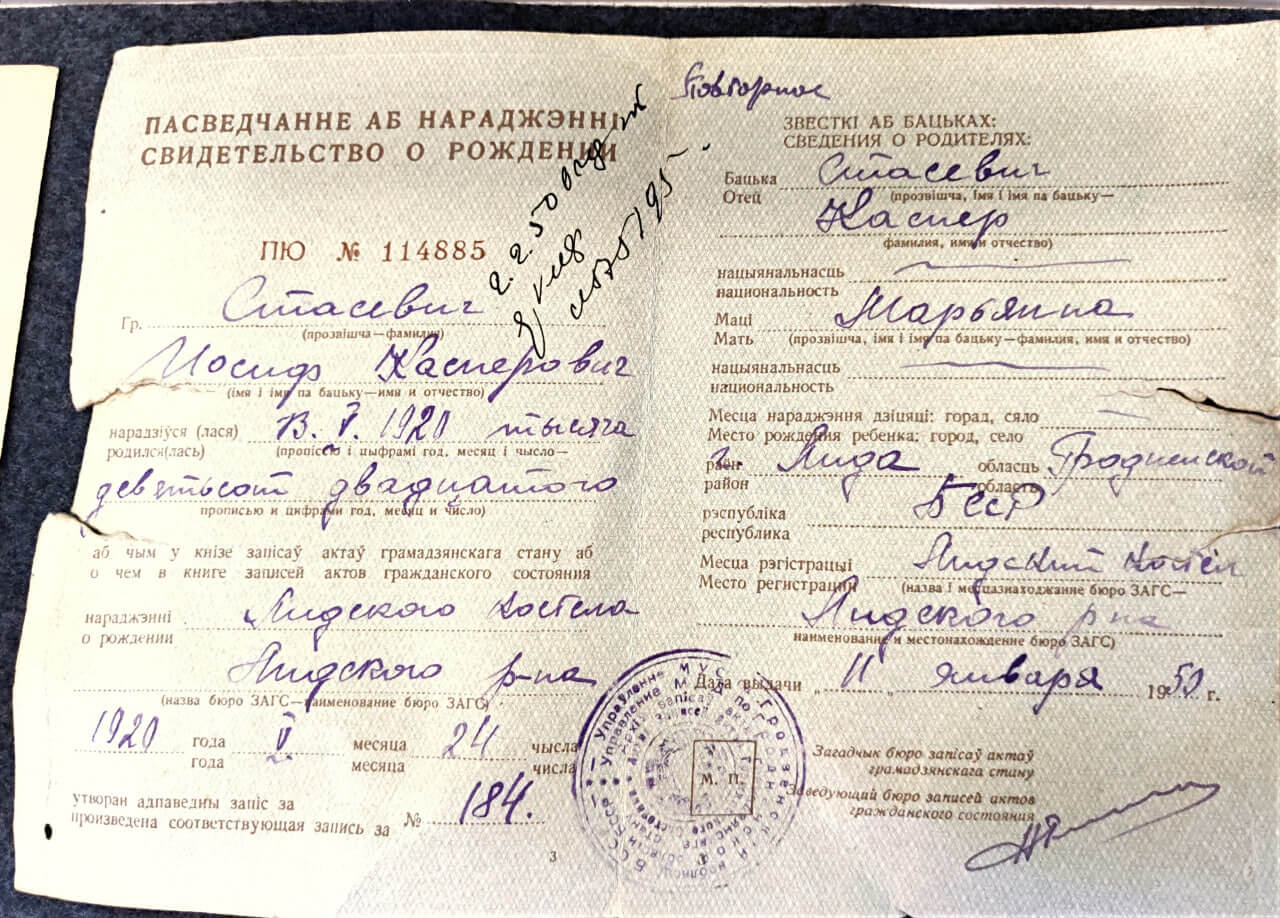 ПАСВЕДЧАННЕ АБ НАРАДЖЭННІ
СВИДЕТЕЛЬСТВО О РОЖДЕНИИ
ПЮ № 114885
Гр. Стасевич
(прозвішча—фамилия)
Иосиф Касперович
(імя і імя па бацьку—имя и отчество)
нарадзіўся (лася) 13. V. 1920 тысяча
родился(лась) (пропіссю і цыфрамі год, месяц і чысло—
девятьсот двадцатого
прописью и цифрами год, месяц и число)
аб чым у кнізе запісаў актаў грамадзянскага стану аб
о чем в книге записей актов гражданского состояния
нараджэнні Лидского костела
о рождении
Лидского р-на
(назва бюро ЗАГС—наименование бюро ЗАГС)
1920 года V месяца 24 чысла
года месяца числа
утворан адпаведны запіс за
произведена соответствующая запись за № 184.
3
2.2.50
Повторное
ЗВЕСТКІ АБ БАЦЬКАХ:
СВЕДЕНИЯ О РОДИТЕЛЯХ:
Бацька Стасевич
Отец (прозвішча, імя і імя па бацьку—
Каспер
фамилия, имя и отчество)
нацыянальнасць
национальность
Маці Марьянна
Мать (прозвішча, імя і імя па бацьку—фамилия, имя и отчество)
нацыянальнасць
национальность
Месца нараджэння дзіцяці: горад, сяло —
Место рождения ребенка: город, село
раён г. Лида обласць Гродненской
район область
рэспубліка БССР
республика
Месца рэгістрацыі Лидский костел
Место регистрации (назва і месцазнаходжанне бюро ЗАГС—
Лидского р-на
наименование и местонахождение бюро ЗАГС)
Дата выдачи „ 11 „ января 1950 г.
М. П.
Загадчык бюро запісаў актаў
грамадзянскага стану
Заведующий бюро записей актов
гражданского состояния